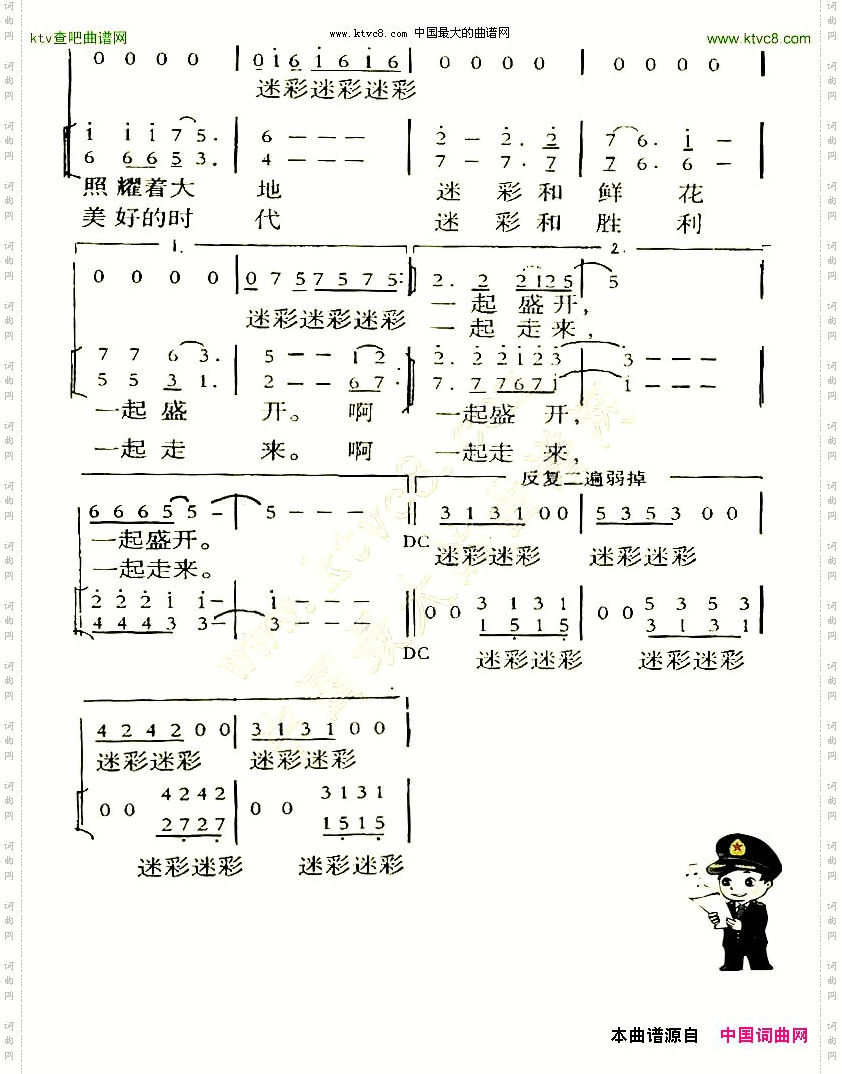 ktv查吧曲谱网 www.ktvc8.com 中国最大的曲谱网 www.ktvc8.com
0 0 0 0 | 0 1 6 1 6 1 6 | 0 0 0 0 | 0 0 0 0 |
迷彩迷彩迷彩
1 1 1 7 5. | 6 – – – | 2 – 2. 2 | 7 6. 1 – |
6 6 6 5 3. | 4 – – – | 7 – 7. 7 | 7 6. 6 – |
照耀着大 地 迷 彩 和 鲜 花
美好的时 代 迷 彩 和 胜 利
1. 2.
0 0 0 0 | 0 7 5 7 5 7 5 :| 2. 2 2 1 2 5 | 5
迷彩迷彩迷彩 一起 盛 开,
一起 走 来,
7 7 6 3. | 5 – – 1 2 | 2. 2 2 1 2 3 | 3 – – –
5 5 3 1. | 2 – – 6 7 | 7. 7 7 6 7 1 | 1 – – –
一起 盛 开。 啊 一起盛 开,
一起 走 来。 啊 一起走 来,
反复二遍弱掉
6 6 6 5 5 – | 5 – – – | 3 1 3 1 0 0 | 5 3 5 3 0 0 |
一起盛开。 DC 迷彩迷彩 迷彩迷彩
一起走来。
2 2 2 1 1 – | 1 – – – || 0 0 3 1 3 1 | 0 0 5 3 5 3 |
4 4 4 3 3 – | 3 – – – || 1 5 1 5 | 3 1 3 1 |
DC 迷彩迷彩 迷彩迷彩
4 2 4 2 0 0 | 3 1 3 1 0 0 |
迷彩迷彩 迷彩迷彩
0 0 4 2 4 2 | 0 0 3 1 3 1 |
2 7 2 7 | 1 5 1 5 |
迷彩迷彩 迷彩迷彩
本曲谱源自 中国词曲网